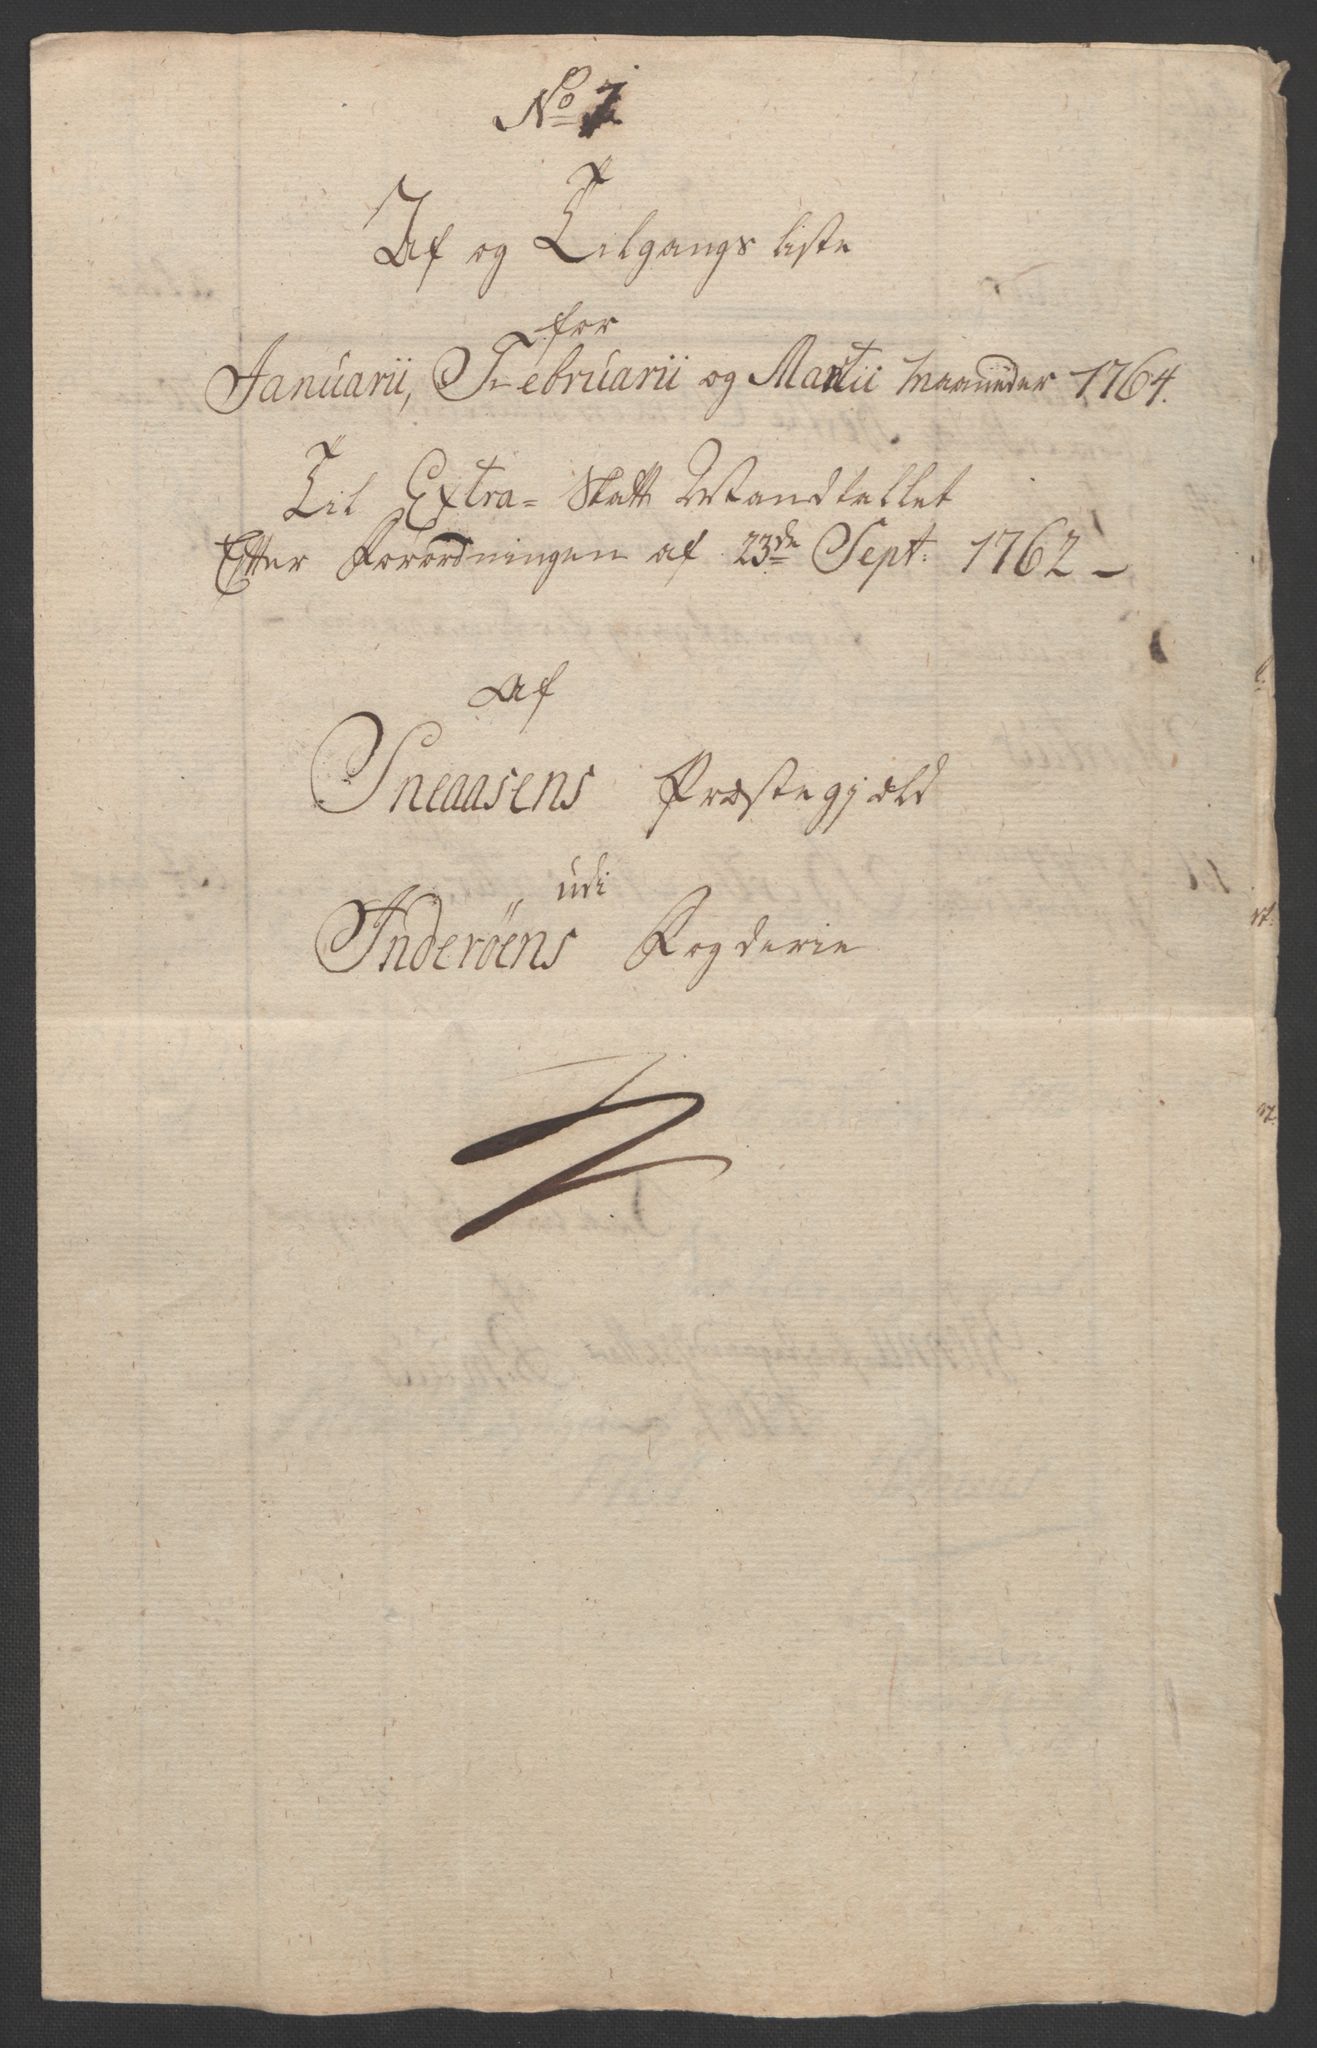 No 7
Af og Tilgangs Liste
for
Januarii, Februarii og Martii Maaneder 1764.
Til Extra= Skatte Mandtallet
Efter Forordningen af 23de Sept: 1762 –
Af
Sneaasens Præstegjæld
udi
Inderöens Fogderie